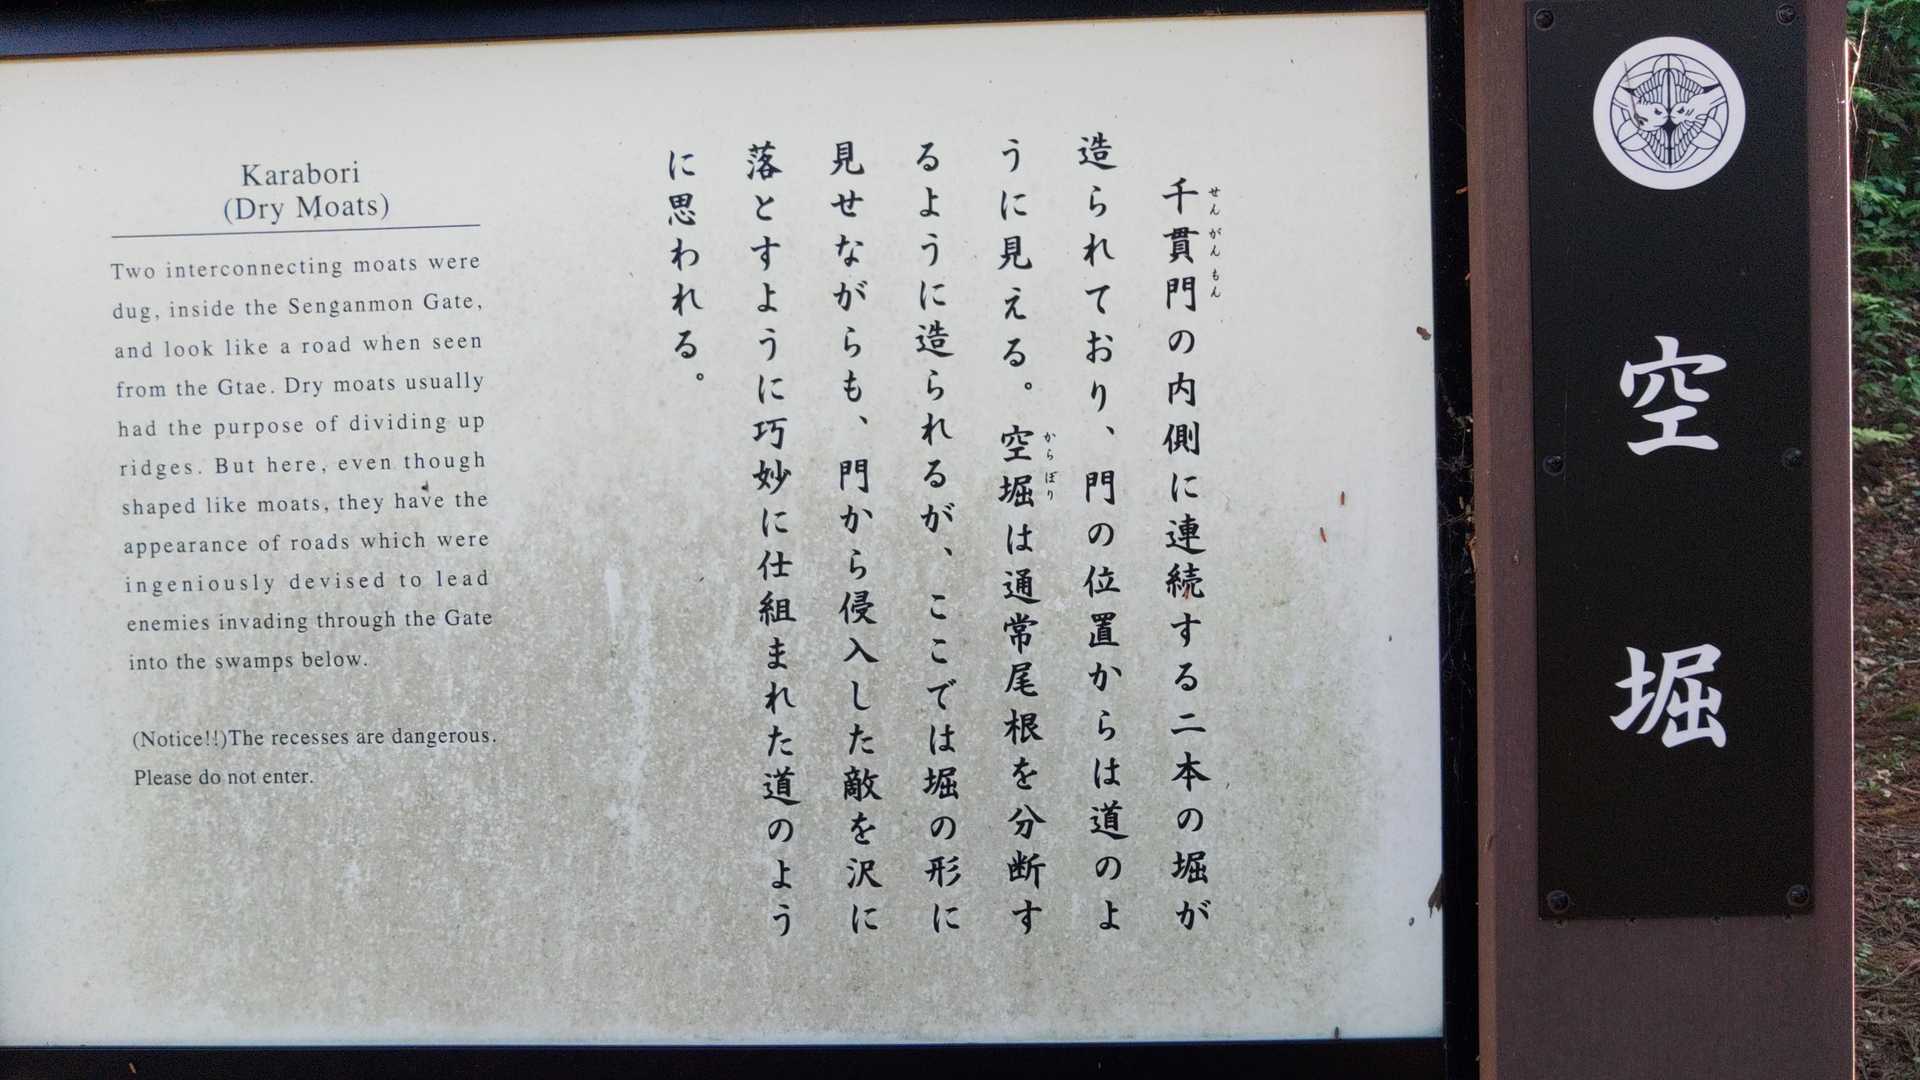 空堀
千貫門の内側に連続する二本の堀が
せんがんもん
造られており、門の位置からは道のよ
うに見える。空堀は通常尾根を分断す
からぼり
るように造られるが、ここでは堀の形に
見せながらも、門から侵入した敵を沢に
落とすように巧妙に仕組まれた道のよう
に思われる。
Karabori
(Dry Moats)
Two interconnecting moats were
dug, inside the Senganmon Gate,
and look like a road when seen
from the Gtae. Dry moats usually
had the purpose of dividing up
ridges. But here, even though
shaped like moats, they have the
appearance of roads which were
ingeniously devised to lead
enemies invading through the Gate
into the swamps below.
(Notice!!)The recesses are dangerous.
Please do not enter.